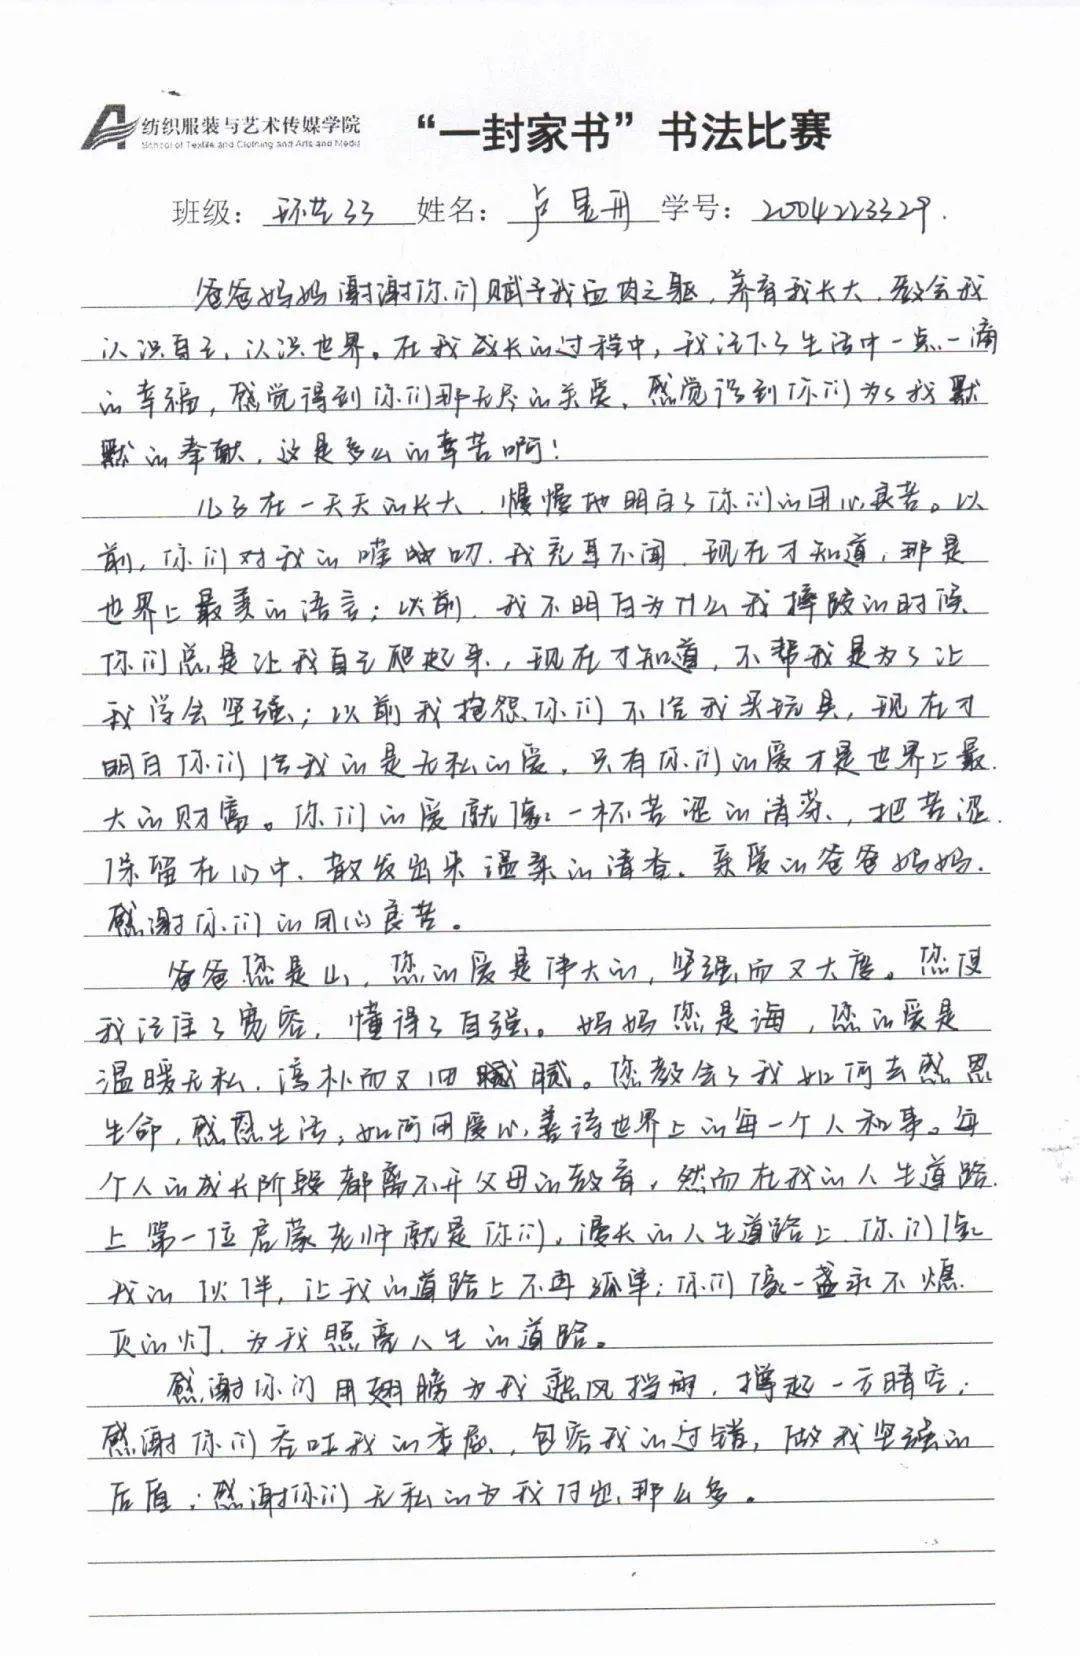 纺织服装与艺术传媒学院
School of Textile and Clothing and Arts and Media
“一封家书”书法比赛
班级：环艺33 姓名：卢昱丹 学号：2004223329.
爸爸妈妈谢谢你们赋予我血肉之躯，养育我长大，教会我
认识自己，认识世界。在我成长的过程中，我记下了生活中一点一滴
的幸福，感觉得到你们那无尽的关爱，感觉得到你们为了我默
默的奉献，这是多么的辛苦啊！
儿子在一天天的长大，慢慢地明白了你们的团心良苦。以
前，你们对我的嘱咐叨，我充耳不闻，现在才知道，那是
世界上最美的语言；以前，我不明白为什么我摔跤的时候
你们总是让我自己爬起来，现在才知道，不帮我是为了让
我学会坚强；以前我抱怨你们不给我买玩具，现在才
明白你们给我的是无私的爱，只有你们的爱才是世界上最
大的财富。你们的爱就像一杯苦涩的清茶，把苦涩
保留在心中，散发出来温柔的清香。亲爱的爸爸妈妈，
感谢你们的团心良苦。
爸爸您是山，您的爱是伟大的，坚强而又大度。您使
我记住了宽容，懂得了自强。妈妈您是海，您的爱是
温暖无私，淳朴而又细腻。您教会了我如何去感恩
生命，感恩生活，如何用爱心善待世界上的每一个人和事。每
个人的成长阶段都离不开父母的教育，然而在我的人生道路
上第一位启蒙老师就是你们。漫长的人生道路上，你们像
我的伙伴，让我的道路上不再孤单；你们像一盏永不熄
灭的灯，为我照亮人生的道路。
感谢你们用翅膀为我遮风挡雨，撑起一方晴空；
感谢你们吞吐我的委屈，包容我的过错，做我坚强的
后盾；感谢你们无私的为我付出那么多。